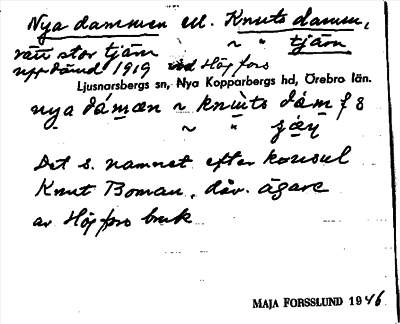 Nya dammen ell. Knuts damm,
rätt stor tjärn ~ " tjärn
uppdämd 1919 vid Högfors
Ljusnarsbergs sn, Nya Kopparbergs hd, Örebro län.
nya dámæn ~ knùts dám f 8
~ "
Det s. namnet efter konsul
Knut Boman, dåv. ägare
av Högfors bruk
MAJA FORSSLUND 1946